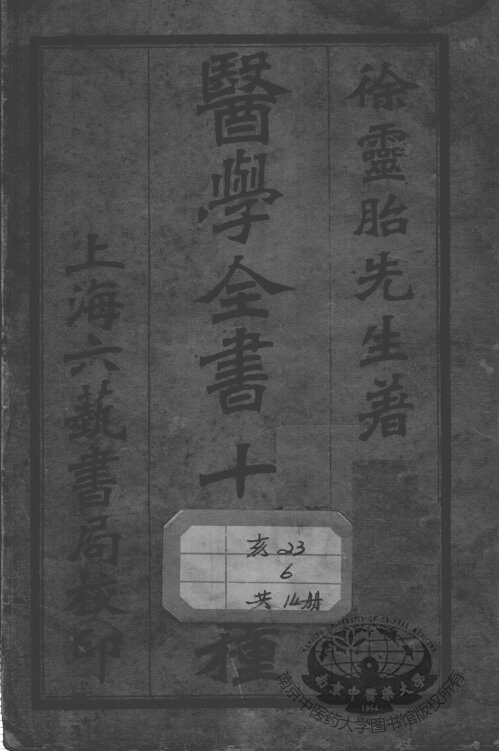 徐靈胎先生著
醫學全書十
種
上海六藝書局校印
亥 23
6
共 14册
NANJING UNIVERSITY OF CHINESE MEDICINE
南京中醫藥大學
1954
南京中医药大学图书馆版权所有